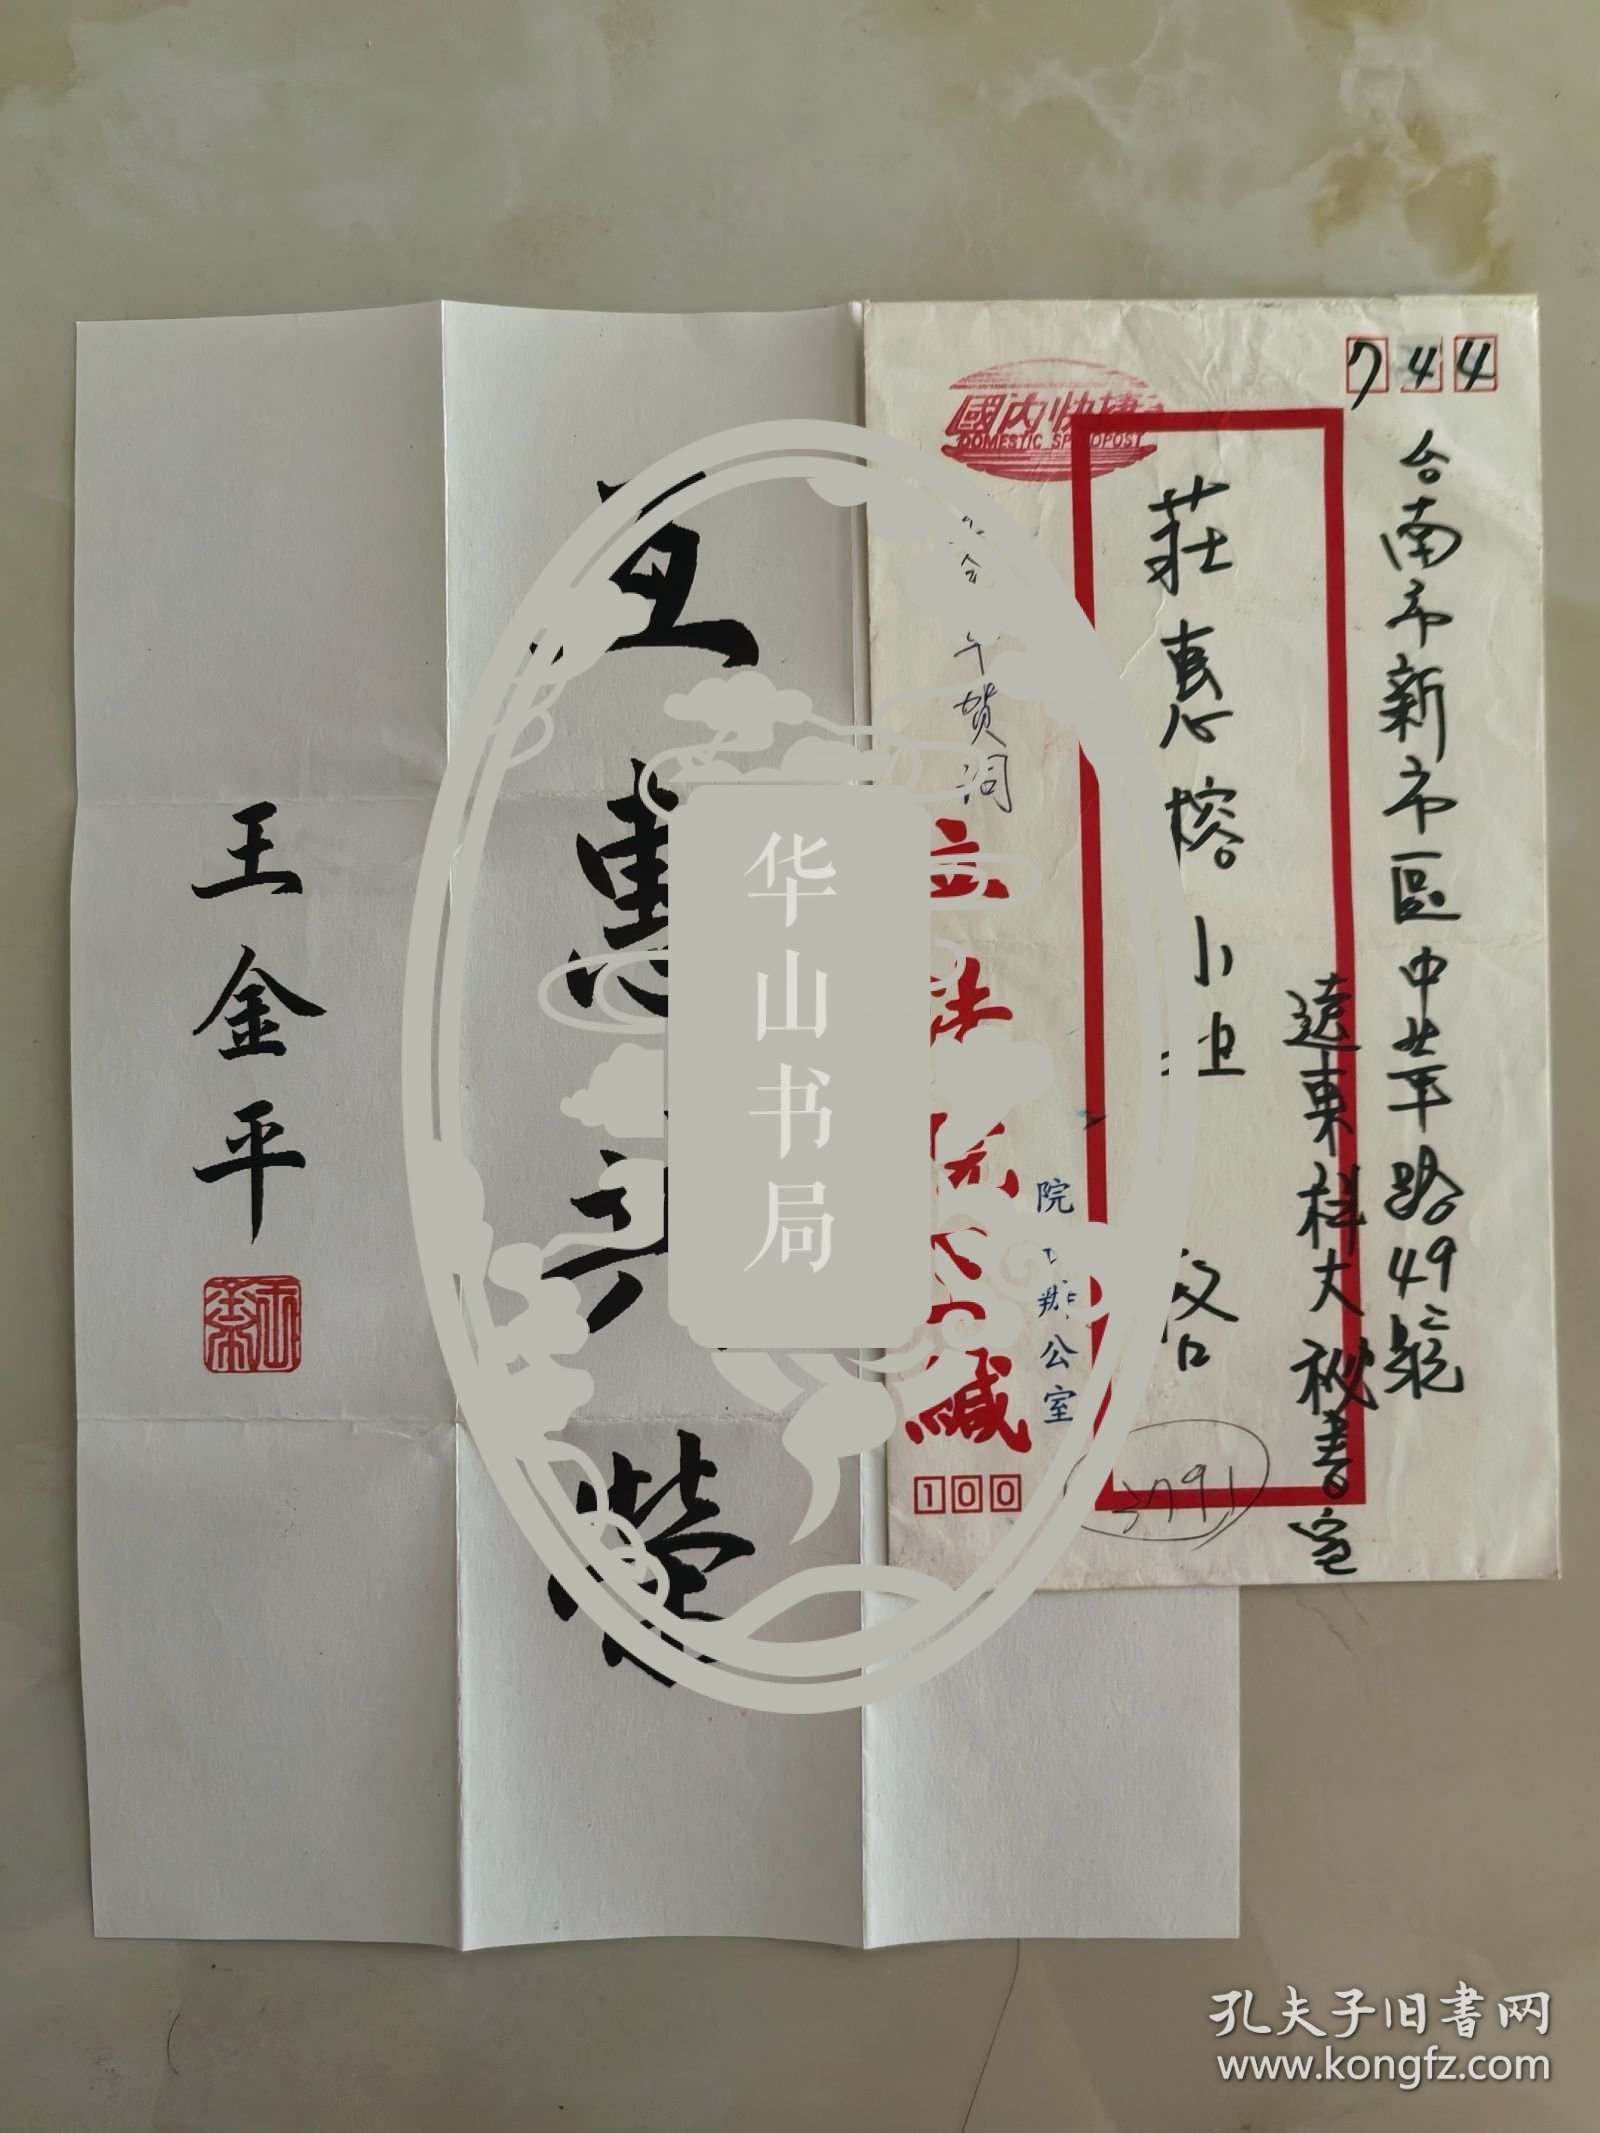 744
台南市新市區中華路49號
遠東科大秘書室
莊惠榕小姐 啓
國內快捷
DOMESTIC SPEEDPOST
年賀詞
立法院 緘
院 辦公室
100
3791
互惠共榮
王金平
华山书局
孔夫子旧书网
www.kongfz.com